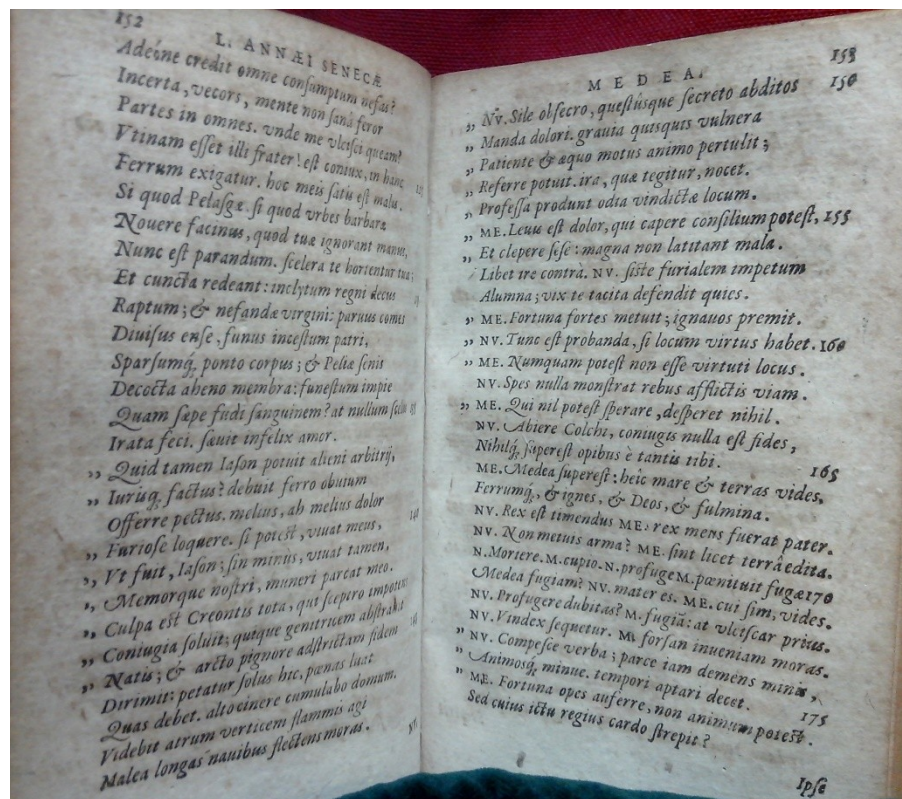 152
L. ANNÆI SENECÆ
Adeóne credit omne consumptum nefas?
Incerta, vecors, mente non sanâ feror
Partes in omnes. vnde me vlcisci queam?
Vtinam esset illi frater! est coniux, in hanc
Ferrum exigatur. hoc meis satis est malis.
Si quod Pelasgæ. si quod vrbes barbaræ
Nouere facinus, quod tuæ ignorant manus,
Nunc est parandum. scelera te hortentur tua;
Et cuncta redeant: inclytum regni decus
Raptum; & nefandæ virginis paruus comes
Diuisus ense, funus incestum patri,
Sparsumq́, ponto corpus; & Peliæ senis
Decocta aheno membra: funestum impie
Quam sæpe fudi sanguinem? at nullum scelus
Irata feci. sæuit infelix amor.
„ Quid tamen Iason potuit alieni arbitrij,
„ Iurisq́, factus? debuit ferro obuium
Offerre pectus. melius, ah melius dolor
„ Furiose loquere. si potest, viuat meus,
„ Vt fuit, Iason; sin minus, viuat tamen,
„ Memorque nostri, muneri parcat meo.
„ Culpa est Creontis tota, qui sceptro impotens
„ Coniugia soluit; quique genitricem abstrahit
„ Natis; & arcto pignore adstrictam fidem
Dirimit; petatur solus hic. pœnas luat
Quas debet. alto cinere cumulabo domum.
Videbit atrum verticem flammis agi
Malea longas nauibus flectens moras.
NV.
MEDEA.
153
„ NV. Sile obsecro, questúsque secreto abditos 150
„ Manda dolori. grauia quisquis vulnera
„ Patiente & æquo motus animo pertulit;
„ Referre potuit. ira, quæ tegitur, nocet.
„ Professa produnt odia vindictæ locum.
„ ME. Leuis est dolor, qui capere consilium potest, 155
„ Et clepere sese: magna non latitant mala.
Libet ire contrà. NV. siste furialem impetum
Alumna; vix te tacita defendit quies.
„ ME. Fortuna fortes metuit; ignauos premit.
„ NV. Tunc est probanda, si locum virtus habet. 160
„ ME. Numquam potest non esse virtuti locus.
NV. Spes nulla monstrat rebus afflictis viam.
„ ME. Qui nil potest sperare, desperet nihil.
NV. Abiere Colchi, coniugis nulla est fides,
Nihilq́, superest opibus è tantis tibi. 165
ME. Medea superest: heîc mare & terras vides,
Ferrumq́, & ignes, & Deos, & fulmina.
NV. Rex est timendus ME. rex meus fuerat pater.
NV. Non metuis arma? ME. sint licet terrâ edita.
N. Moriere. M. cupio. N. profuge M. pœnituit fugæ 170
Medea fugiam? NV. mater es. ME. cui sim, vides.
NV. Profugere dubitas? M. fugiã: at vlciscar priùs.
NV. Vindex sequetur. M. forsan inueniam moras.
„ NV. Compesce verba; parce iam demens minis,
„ Animosq́, minue. tempori aptari decet. 175
„ ME. Fortuna opes auferre, non animum potest.
Sed cuius ictu regius cardo strepit?
Ipse